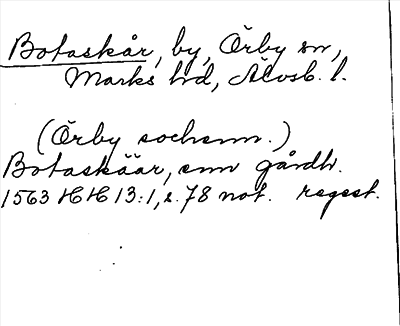 Botaskår, by, Örby sn,
Marks hd, Älvsb. l.
(Örby sochenn.)
Botaskåår, enn gårdh.
1563 HH 13:1, s. 78 not. regest.